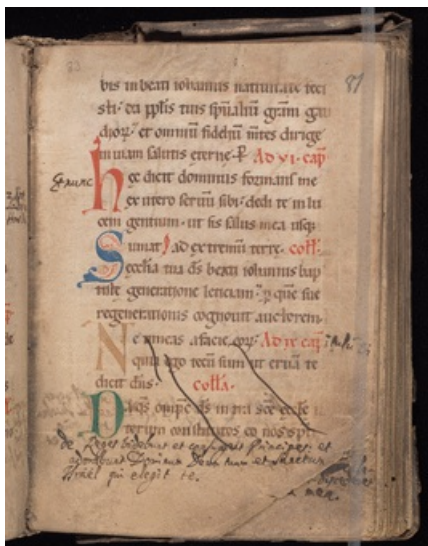 81
bis in beati iohannis natiuitate feci
sti· da pplis tuis spualiu gram gau
dioꝝ· et omniu fideliu mtes dirige
in uiam salutis eterne· P Ad vi· cap
hec dicit dominus formans me
ex utero seruu sibi· dedi te in lu
cem gentium· ut sis salus mea usq;
Sumat ad extremu terre· coll·
ecclia tua ds beati iohannis bap
tiste generatione leticiam· p que sue
regenerationis cognouit auctorem·
Ne timeas a facie eoꝝ· Ad ix cap
quia ego tecu sum ut eruā te
dicit dns· colla·
Da qs omps ds
constitutos
Reges videbunt et Principes et
adorabunt Dominum Deum tuum et Sanctum
Israel qui elegit te.